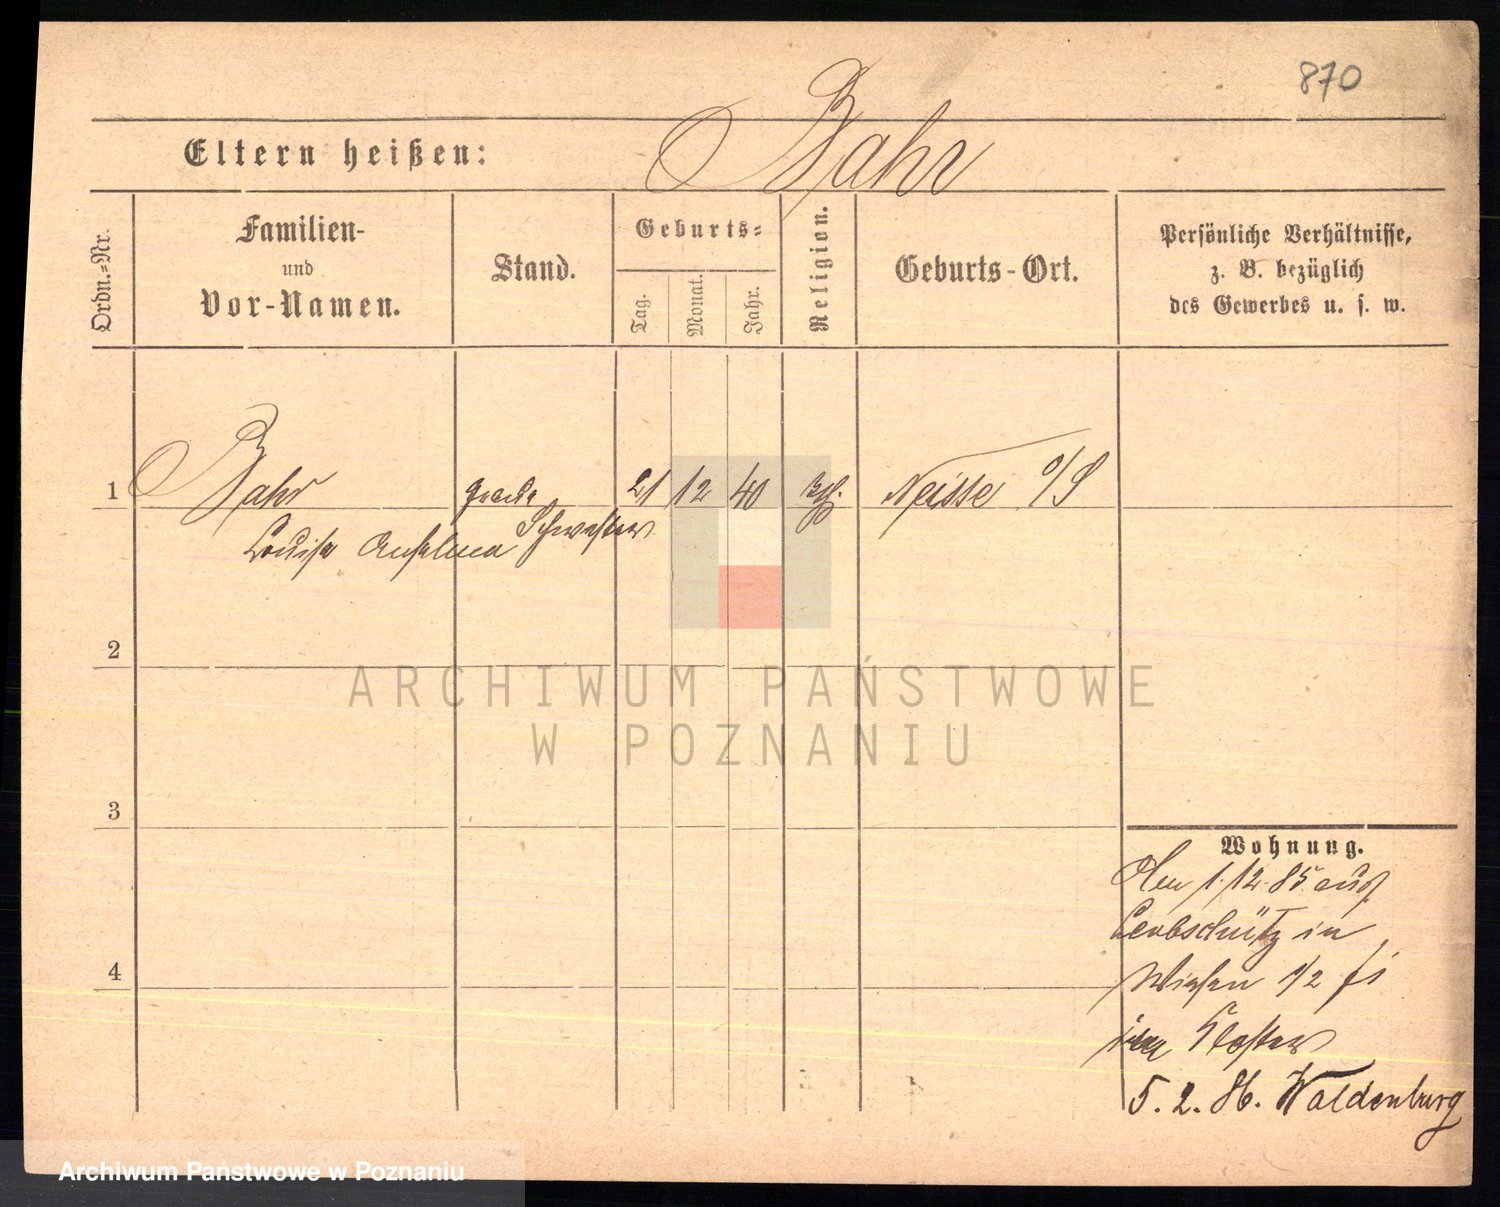 870
Eltern heißen: Bahr
Ordn.-Nr.
Familien-
und
Vor-Namen.
Stand.
Geburts-
Tag.
Monat.
Jahr.
Religion.
Geburts-Ort.
Persönliche Verhältnisse,
z. B. bezüglich
des Gewerbes u. s. w.
1 Bahr graue 21 12 40 Kth. Neisse O/S
Louise Anselma Schwester
2
ARCHIWUM PAŃSTWOWE
W POZNANIU
3
Wohnung.
Den 1.12.85 aus
Leobschütz in
Wiesen 1/2 bei
im Kloster
4
5. 2. 86. Waldenburg
Archiwum Państwowe w Poznaniu